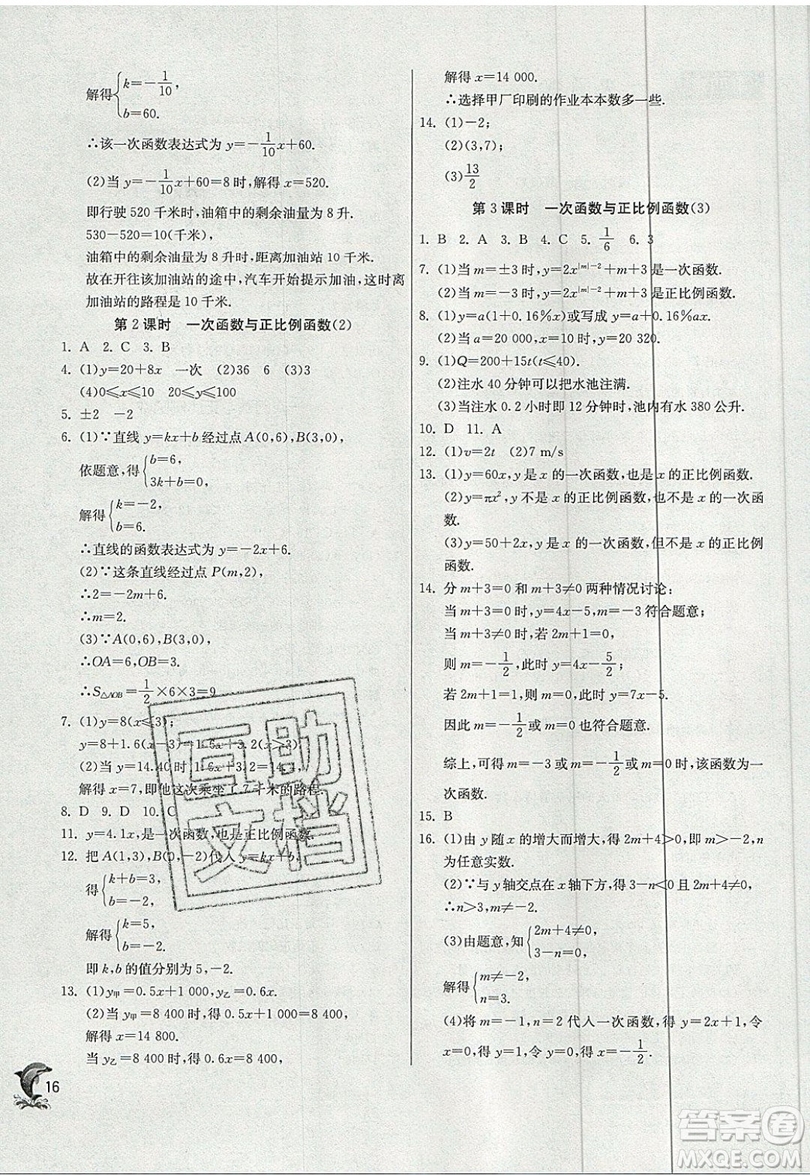 解得{k=-1/10,
b=60.
∴该一次函数表达式为 y=-1/10x+60.
(2)当 y=-1/10x+60=8 时,解得 x=520.
即行驶 520 千米时,油箱中的剩余油量为 8 升.
530-520=10(千米),
油箱中的剩余油量为 8 升时,距离加油站 10 千米.
故在开往该加油站的途中,汽车开始提示加油,这时离
加油站的路程是 10 千米.
第 2 课时 一次函数与正比例函数(2)
1. A 2. C 3. B
4. (1)y=20+8x 一次 (2)36 6 (3)3
(4)0≤x≤10 20≤y≤100
5. ±2 -2
6. (1)∵直线 y=kx+b 经过点 A(0,6),B(3,0),
依题意,得{b=6,
3k+b=0,
解得{k=-2,
b=6.
∴直线的函数表达式为 y=-2x+6.
(2)∵这条直线经过点 P(m,2),
∴2=-2m+6,
∴m=2.
(3)∵A(0,6),B(3,0),
∴OA=6,OB=3.
∴S△AOB=1/2×6×3=9.
7. (1)y=8(x≤3);
y=8+1.6(x-3)=1.6x+3.2(x>3).
(2)当 y=14.40 时,14.4=1.6x+3.2,
解得 x=7,即他这次乘坐了 7 千米的路程.
8. D 9. D 10. C
11. y=4.1x,是一次函数,也是正比例函数.
12. 把 A(1,3),B(0,-2)代入 y=kx+b,
得{k+b=3,
b=-2,
解得{k=5,
b=-2.
即 k,b 的值分别为 5,-2.
13. (1)y甲=0.5x+1 000,y乙=0.6x.
(2)当 y甲=8 400 时,得 0.5x+1 000=8 400,
解得 x=14 800.
当 y乙=8 400 时,得 0.6x=8 400,
16
解得 x=14 000.
∴选择甲厂印刷的作业本本数多一些.
14. (1)-2;
(2)(3,7);
(3)13/2
第 3 课时 一次函数与正比例函数(3)
1. B 2. A 3. B 4. C 5. 1/6 6. 3
7. (1)当 m=±3 时,y=2x^{|m|-2}+m+3 是一次函数.
(2)当 m=-3 时,y=2x^{|m|-2}+m+3 是正比例函数.
8. (1)y=a(1+0.16%x)或写成 y=a+0.16%ax.
(2)当 a=20 000,x=10 时,y=20 320.
9. (1)Q=200+15t(t≤40).
(2)注水 40 分钟可以把水池注满.
(3)当注水 0.2 小时即 12 分钟时,池内有水 380 公升.
10. D 11. A
12. (1)v=2t (2)7 m/s
13. (1)y=60x,y 是 x 的一次函数,也是 x 的正比例函数.
(2)y=πx²,y 不是 x 的一次函数,也不是 x 的正比例函
数.
(3)y=50+2x,y 是 x 的一次函数,不是 x 的正比例函
数.
14. 分 m+3=0 和 m+3≠0 两种情况讨论:
当 m+3=0 时,即 m=-3 符合题意;
当 m+3≠0 时,若 2m+1=0,
则 m=-1/2,此时 y=4x-5/2;
若 2m+1=1,则 m=0,此时 y=7x-5.
因此 m=-1/2或 m=0 也符合题意.
综上,可得 m=-3 或 m=-1/2或 m=0 时,函数是一
次函数.
15. B
16. (1)由 y 随 x 的增大而增大,得 2m+4>0,m>-2,n
为任意实数.
(2)∵与 y 轴交点在 x 轴下方,得 m≠-2,3-n<0,
∴n>3,m≠-2.
(3)由题意,知{2m+4≠0,
3-n=0,
解得{m≠-2,
n=3.
(4)将 m=-1,n=2 代入一次函数,得 y=2x+1,令
y=0,得 x=-1/2.
互助
文档
答案卷
MXQE.COM